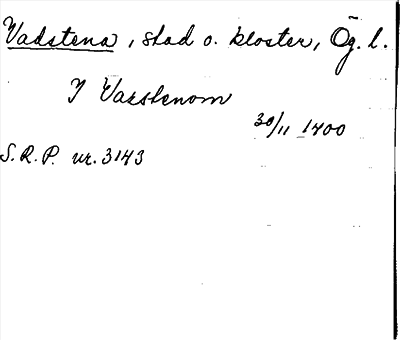 Vadstena, stad o. kloster, Ög. l.
I Vazstenom
30/11 1400
S.R.P. nr. 3143